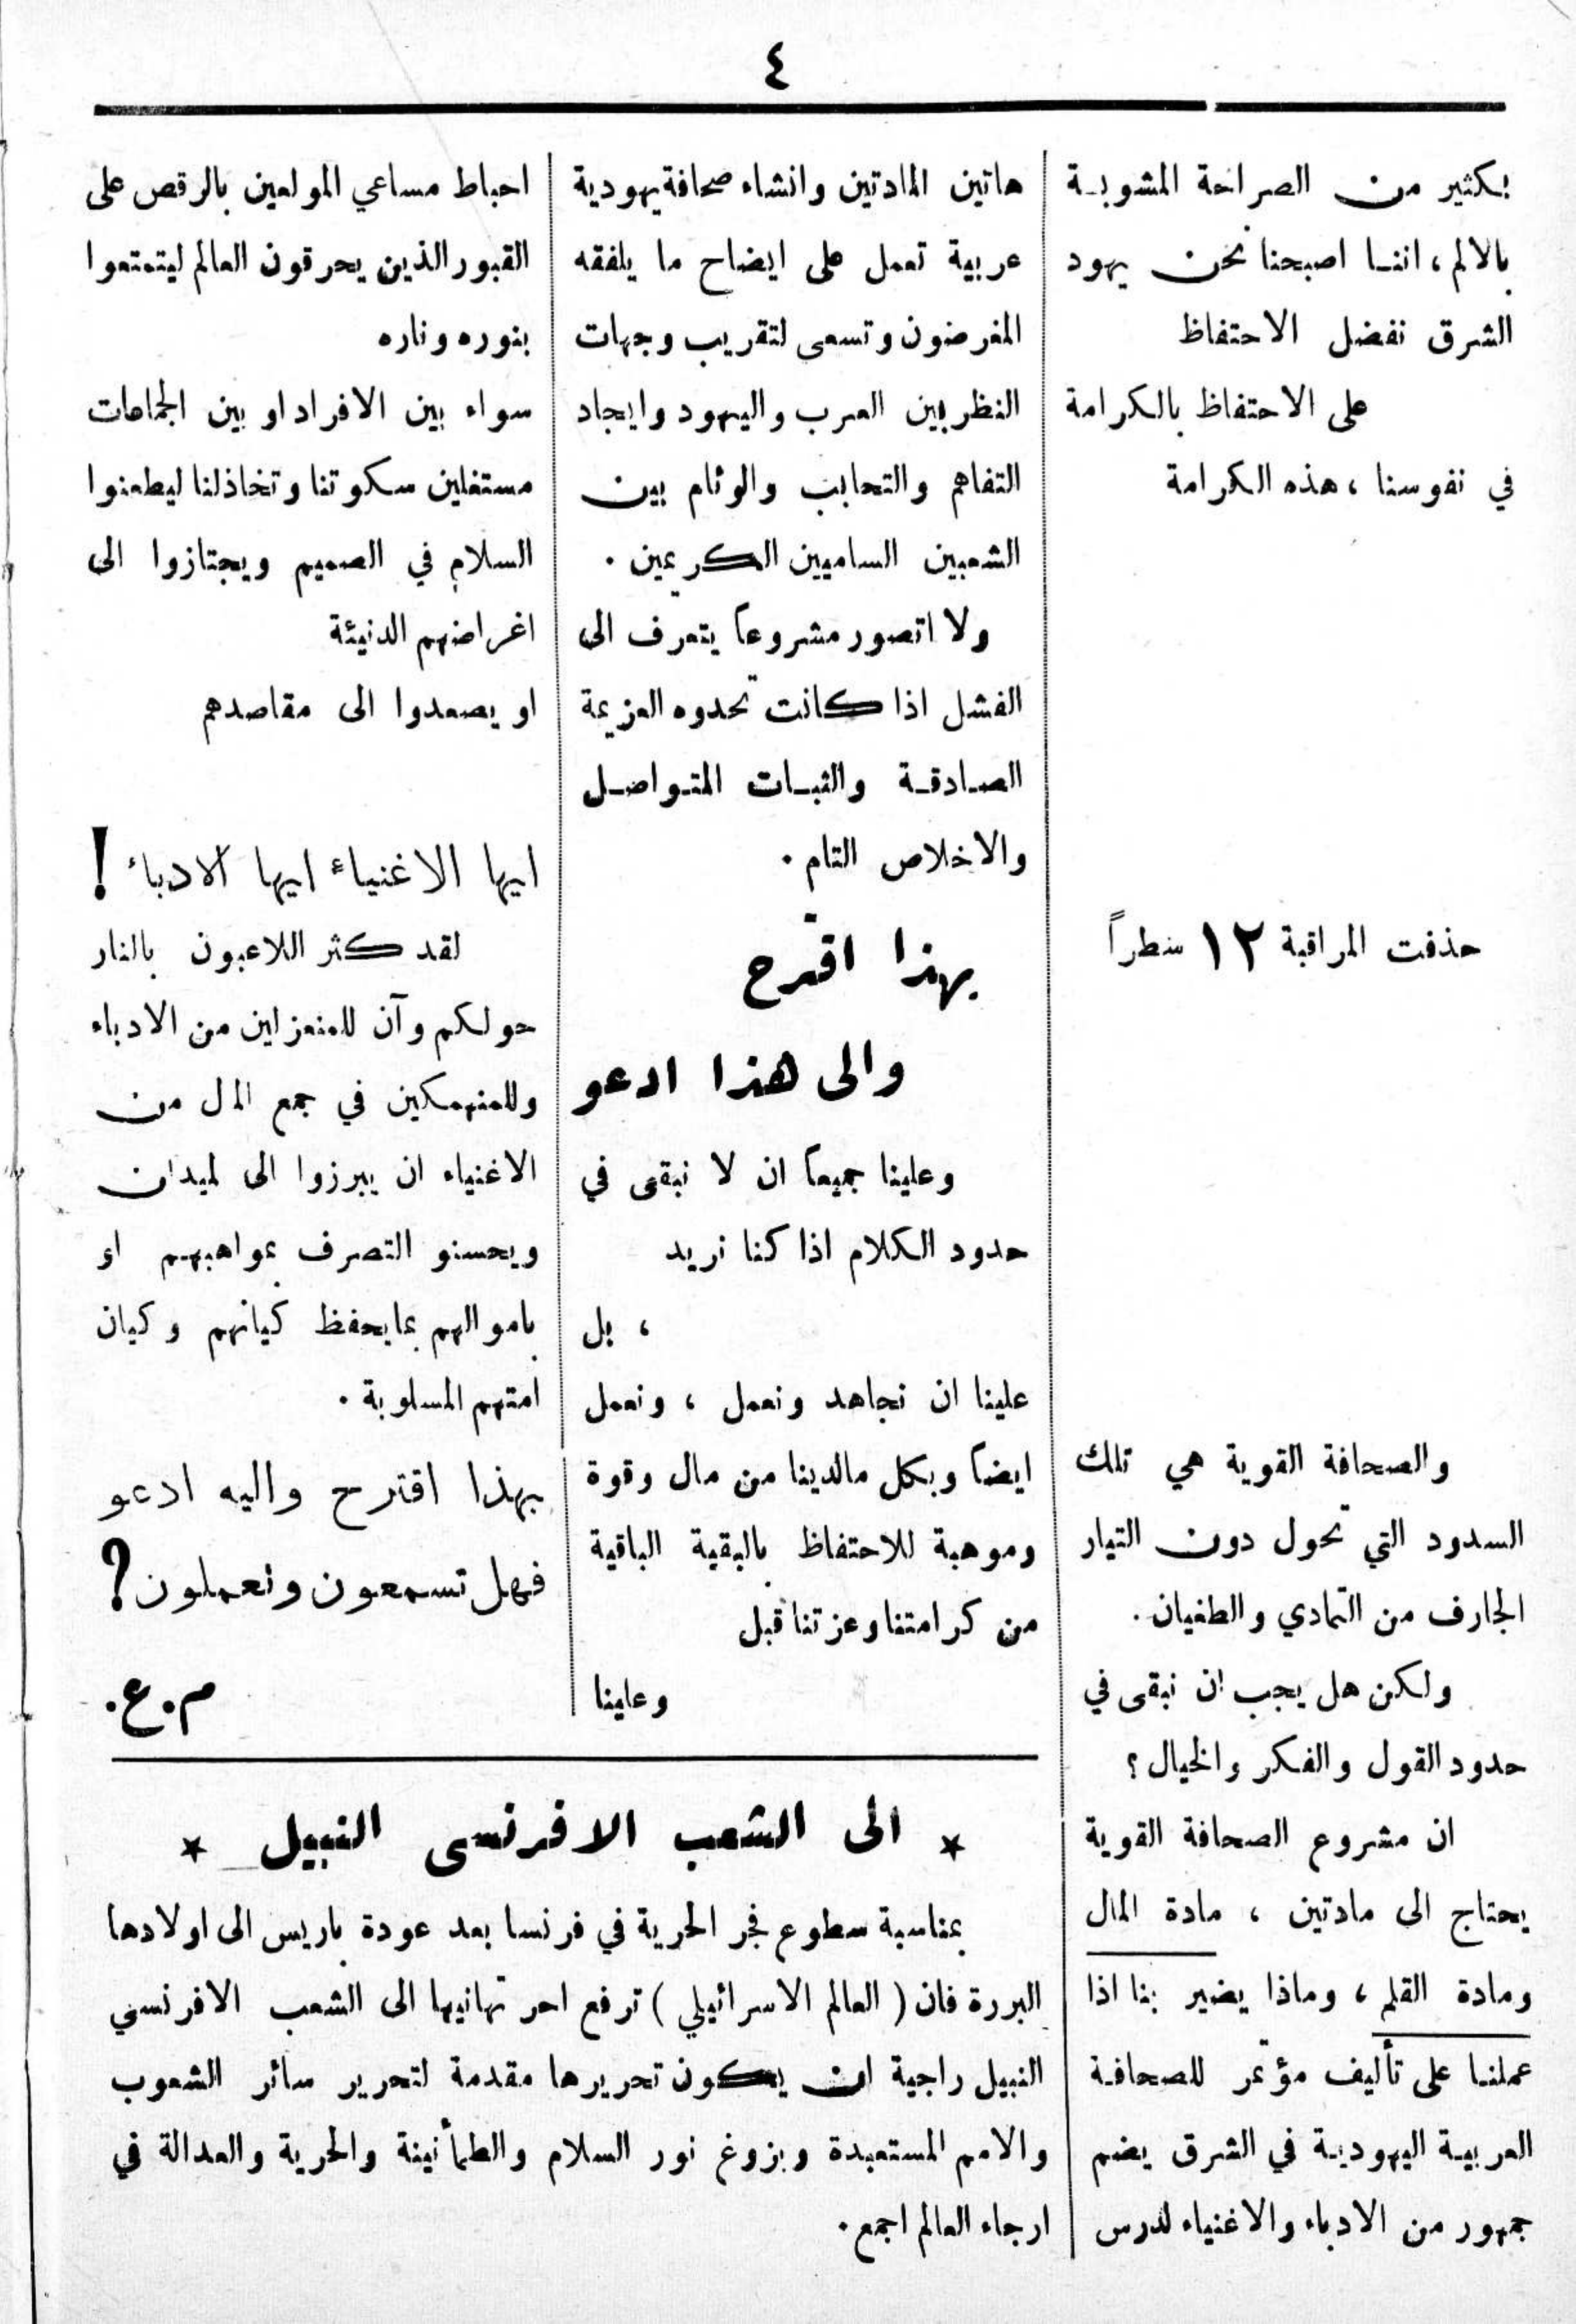 ٤
بكثير من الصراحة المشوبة
بالالم ، اننا اصبحنا نحن يهود
الشرق نفضل الاحتفاظ
على الاحتفاظ بالكرامة
في نفوسنا ، هذه الكرامة
حذفت المراقبة ١٢ سطراً
والصحافة القوية هي تلك
السدود التي تحول دون التيار
الجارف من التمادي والطغيان .
ولكن هل يجب ان نبقى في
حدود القول والفكر والخيال ؟
ان مشروع الصحافة القوية
يحتاج الى مادتين ، مادة المال
ومادة القلم ، وماذا يضير بنا اذا
عملنا على تأليف مؤتمر للصحافة
العربية اليهودية في الشرق يضم
جمهور من الادباء والاغنياء لدرس
هاتين المادتين وانشاء صحافة يهودية
عربية تعمل على ايضاح ما يلفقه
المغرضون وتسعى لتقريب وجهات
النظر بين العرب واليهود وايجاد
التفاهم والتحابب والوئام بين
الشعبين الساميين الكريمين .
ولا اتصور مشروعاً يتعرف الى
الفشل اذا كانت تحدوه العزيمة
الصادقة والثبات المتواصل
والاخلاص التام .
بهذا اقترح
والى هذا ادعو
وعلينا جميعاً ان لا نبقى في
حدود الكلام اذا كنا نريد
، بل
علينا ان نجاهد ونعمل ، ونعمل
ايضاً وبكل مالدينا من مال وقوة
وموهبة للاحتفاظ بالبقية الباقية
من كرامتنا وعزتنا قبل
وعلينا
احباط مساعي المولعين بالرقص على
القبور الذين يحرقون العالم ليتمتعوا
بنوره وناره
سواء بين الافراد او بين الجماعات
مستغلين سكوتنا وتخاذلنا ليطعنوا
السلام في الصميم ويجتازوا الى
اغراضهم الدنيئة
او يصعدوا الى مقاصدهم
ايها الاغنياء ايها الادباء !
لقد كثر اللاعبون بالنار
حولكم وآن للمنعزلين من الادباء
وللمنهمكين في جمع المال من
الاغنياء ان يبرزوا الى لميدان
ويحسنو التصرف بمواهبهم او
باموالهم بما يحفظ كيانهم وكيان
امتهم المسلوبة .
بهذا اقترح واليه ادعو
فهل تسمعون وتعملون ؟
م . ع .
* الى الشعب الافرنسى النبيل *
بمناسبة سطوع فجر الحرية في فرنسا بعد عودة باريس الى اولادها
البررة فان ( العالم الاسرائيلي ) ترفع احر تهانيها الى الشعب الافرنسي
النبيل راجية ان يكون تحريرها مقدمة لتحرير سائر الشعوب
والامم المستعبدة وبزوغ نور السلام والطمأنينة والحرية والعدالة في
ارجاء العالم اجمع .